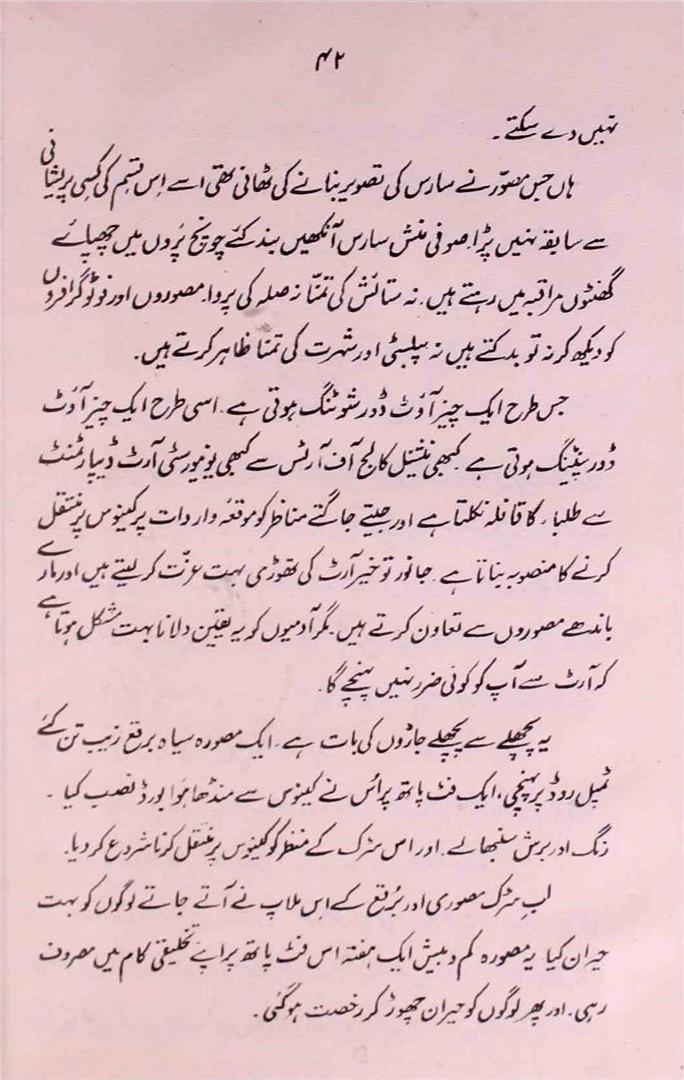 ۴۲
نہیں دے سکتے ۔
ہاں جس مصوّر نے سارس کی تصویر بنانے کی ٹھانی تھی اسے اِس قسم کی کسی پریشانی
سے سابقہ نہیں پڑا. صوفی منش سارس آنکھیں بند کئے چونچ پَروں میں چھپائے
گھنٹوں مراقبہ میں رہتے ہیں. نہ ستائش کی تمنّا نہ صلہ کی پروا. مصوروں اور فوٹوگرافروں
کو دیکھ کر نہ تو بدکتے ہیں نہ پبلسٹی اور شہرت کی تمنا ظاہر کرتے ہیں.
جس طرح ایک چیز آؤٹ ڈور شوٹنگ ہوتی ہے. اسی طرح ایک چیز آؤٹ
ڈور پینٹنگ ہوتی ہے کبھی نیشنل کالج آف آرٹس سے کبھی یونیورسٹی آرٹ ڈیپارٹمنٹ
سے طلباء کا قافلہ نکلتا ہے اور جیتے جاگتے مناظر کو موقعۂ واردات پر کینوس پر منتقل
کرنے کا منصوبہ بناتا ہے. جانور تو خیر آرٹ کی تھوڑی بہت عزّت کر لیتے ہیں اور مارے
باندھے مصوروں سے تعاون کرتے ہیں. مگر آدمیوں کو یہ یقین دلانا بہت مشکل ہوتا ہے
کہ آرٹ سے آپ کو کوئی ضرر نہیں پہنچے گا.
یہ پچھلے سے پچھلے جاڑوں کی بات ہے. ایک مصورہ سیاہ برقع زیب تن کئے
ٹمپل روڈ پر پہنچی، ایک فٹ پاتھ پر اُس نے کینوس سے منڈھا ہوا بورڈ نصب کیا ۔
رنگ اور برش سنبھالے. اور اس سڑک کے منظر کو کینوس پر منتقل کرنا شروع کر دیا.
لبِ سڑک مصوری اور بُرقع کے اس ملاپ نے آتے جاتے لوگوں کو بہت
حیران کیا یہ مصورہ کم و بیش ایک ہفتہ اس فٹ پاتھ پر اپنے تخلیقی کام میں مصروف
رہی. اور پھر لوگوں کو حیران چھوڑ کر رخصت ہو گئی ۔